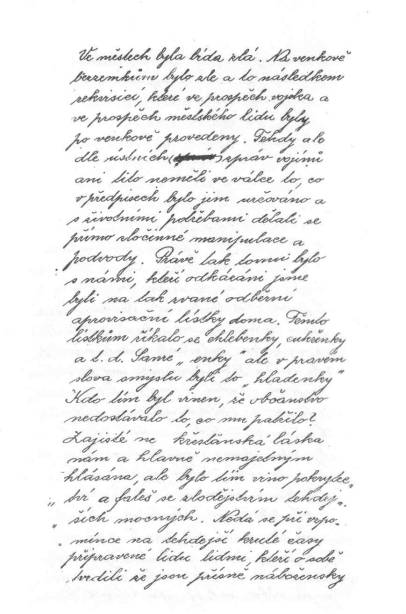 Ve městech byla bída zlá. Na venkově
bezzemkům bylo zle a to následkem
rekvisicí, které ve prospěch vojska a
ve prospěch městského lidu byly
po venkově provedeny. Tehdy ale
dle ústních zpráv vojínů
ani tito neměli ve válce to, co
v předpisech bylo jim určováno a
s životními potřebami dělali se
přímo zločinné manipulace a
podvody. Právě tak tomu bylo
s námi, kteří odkázáni jsme
byli na tak zvané odběrní
aprovisační lístky doma. Těmto
lístkům říkalo se chlebenky, cukřenky
a t. d. Samé „enky" ale v pravém
slova smyslu byli to „hladenky"
Kdo tím byl vinen, že občanstvo
nedostávalo to, co mu patřilo?
Zajisté ne křesťanská láska
nám a hlavně nemajetným
hlásána, ale bylo tím vino pokrytec„
„tví a faleš se zlodějstvím tehdej„
„ších mocných. Nedá se při vzpo„
mínce na tehdejší kruté časy
připravené lidu lidmi, kteří o sobě
tvrdili že jsou přísně nábožensky